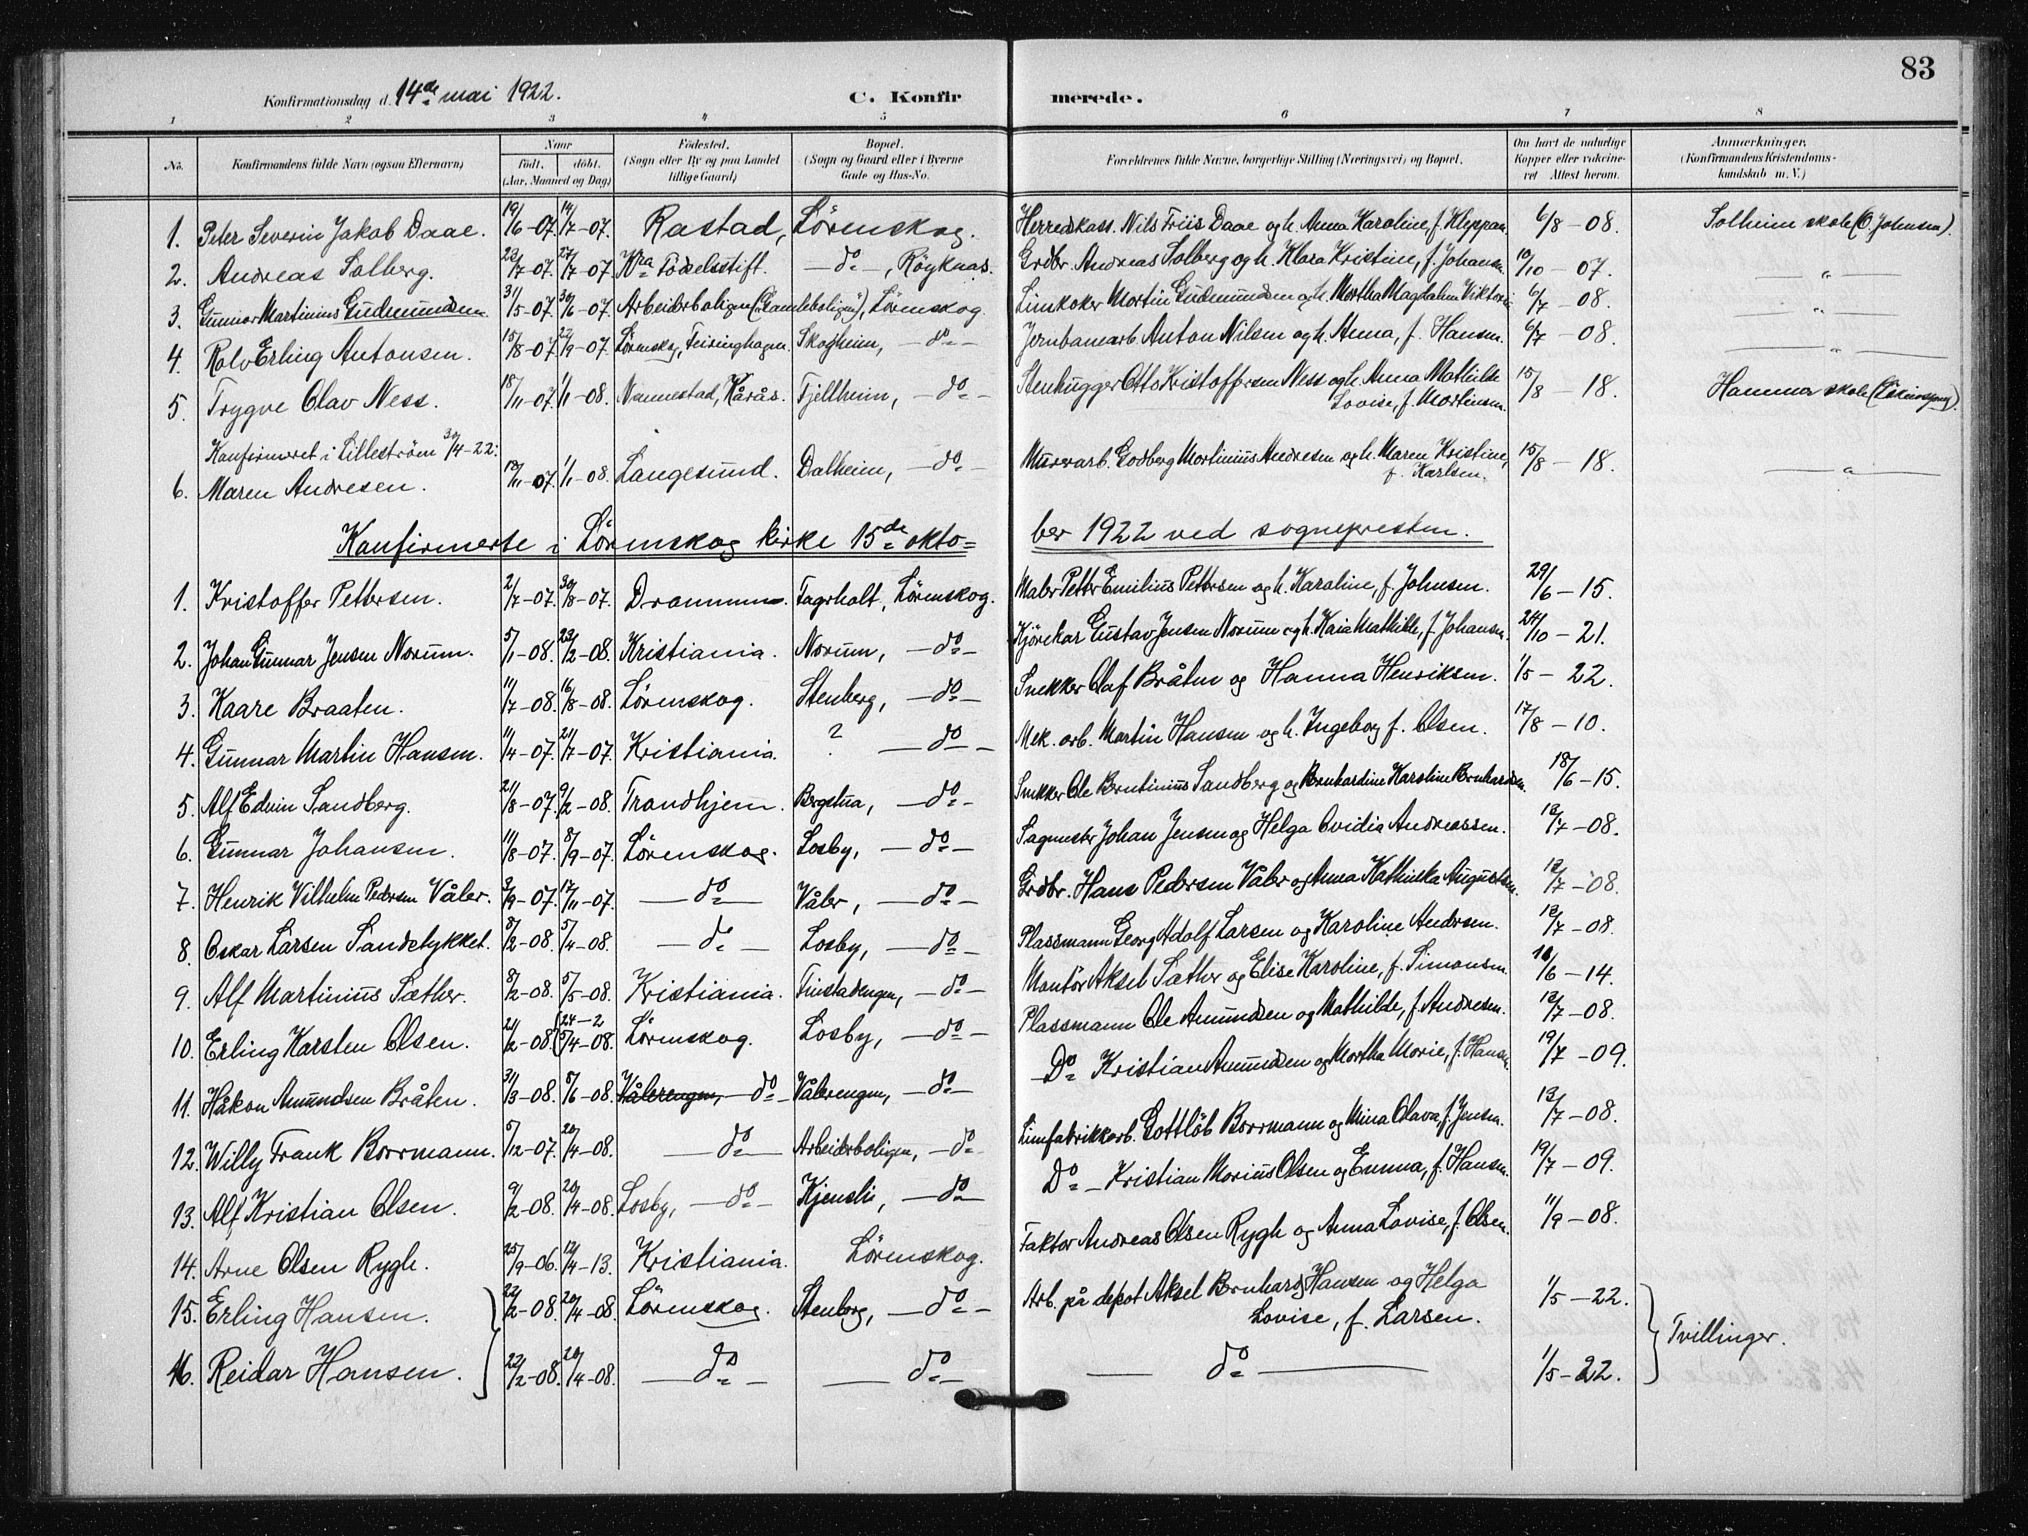 83
Konfirmationsdag d. 14de mai 1922. C. Konfirmerede.
1 2 3 4 5 6 7 8
No. Konfirmandens fulde Navn (ogsaa Efternavn) Naar født. døbt. (Aar, Maaned og Dag) Fødested. (Sogn eller By og paa Landet tillige Gaard) Bopæl. (Sogn og Gaard eller i Byerne Gade og Hus-No. Forældrenes fulde Navne, borgerlige Stilling (Næringsvei) og Bopæl. Om havt de naturlige Kopper eller vaccineret Attest herom. Anmærkninger. (Konfirmandens Kristendomskundskab m. V.)
1. Peter Severin Jakob Daae. 19/6-07. 14/7-07. Rastad, Lørenskog. Herredskass. Nils Friis Daae og h. Anna Karoline, f. Kleppan. 6/8-08. Solheim skole (O. Johnsen).
2. Andreas Solberg. 23/7-07. 27/7-07. Kra Fødselsstift. —do—, Røyknas. Grdbr. Andreas Solberg og h. Klara Kristine, f. Johansen. 10/10-07. — " —
3. Gunnar Martinius Gudmundsen. 31/5-07. 30/6-07. Arbeiderboligen ("Gamleboligen"), Lørenskog. Limkoker Martin Gudmundsen og h. Martha Magdalena 6/7-08. — " —
4. Rolv Erling Antonsen. 15/8-07. 22/9-07. Lørenskog, Feiringhagen. Skogheim, —do— Jernbanearb. Anton Nilsen og h. Anna, f. Hansen. 6/7-08. — " —
5. Trygve Olav Ness. 18/11-07. 1/1-08. Nannestad, Kårås. Fjellheim, —do— Stenhugger Otto Kristoffersen Ness og h. Anna Mathilde Lovise, f. Martinsen. 15/8-18. Hammer skole
Konfirmeret i Lillestrøm 30/4-22:
6. Maren Andresen. 18/11-07. 1/1-08. Langesund. Dalheim, —do— Murerarb. Godberg Martinius Andresen og h. Maren Kristine, f. Karlsen. 15/8-18. — " —
Konfirmerte i Lørenskog kirke 15de oktober 1922 ved sognepresten.
1. Kristoffer Pettersen. 2/7-07. 30/8-07. Drammen. Fagerholt, Lørenskog. Maler Petter Emilius Pettersen og h. Karoline, f. Johnsen. 29/6-15.
2. Johan Gunnar Jensen Norum. 5/1-08. 23/2-08. Kristiania. Norum, —do— Kjørekar Gustav Jensen Norum og h. Kaia Mathilde, f. Johansen. 24/10-21.
3. Kaare Braaten. 11/7-08. 16/8-08. Lørenskog. Stenberg, —do— Snekker Olaf Bråten og Hanna Henriksen. 1/5-22.
4. Gunnar Martin Hansen. 11/4-07. 21/7-07. Kristiania. ? —do— Mek. arb. Martin Hansen og h. Ingeborg f. Olsen. 17/8-10.
5. Alf Edvin Sandberg. 21/8-07. 9/2-08. Trondhjem. Bergstua, —do— Snekker Ole Berntinius Sandberg og Bernhardine Karoline Bernhardsen. 18/6-15.
6. Gunnar Johansen. 11/8-07. 8/9-07. Lørenskog. Losby, —do— Sagmester Johan Jensen og Helga Ovidia Andreassen. 12/7-08.
7. Henrik Vilhelm Pedersen Våler. 3/9-07. 17/11-07. —do— Våler, —do— Grdbr. Hans Pedersen Våler og Anna Kathinka Augustsen. 12/7-08.
8. Oskar Larsen Sandstykket. 8/2-08. 5/4-08. —do— Losby, —do— Plassmann Georg Adolf Larsen og Karoline Andersen. 12/7-08.
9. Alf Martinius Sæther. 8/2-08. 5/5-08. Kristiania. Finstadengen, —do— Montør Aksel Sæther og Elise Karoline, f. Simonsen. 18/6-14.
10. Erling Karsten Olsen. 21/2-08. (24-2 5/4-08. Lørenskog. Losby, —do— Plassmann Ole Amundsen og Mathilde, f. Andresen. 12/7-08.
11. Håkon Amundsen Bråten. 31/3-08. 5/6-08. Vålerengen, —do— Vålerengen, —do— Do Kristian Amundsen og Martha Marie, f. Hansen. 19/7-09.
12. Willy Frank Borrmann. 5/12-07. 20/4-08. —do— Arbeiderboligen, —do— Limfabrikkarb. Gottlöb Borrmann og Mina Olava, f. Jensen. 12/7-08.
13. Alf Kristian Olsen. 9/2-08. 20/4-08. Losby, —do— Kjensli, —do— Do — Kristian Marius Olsen og Emma, f. Hansen. 19/7-09.
14. Arne Olsen Rygh. 25/9-06. 12/4-13. Kristiania. Lørenskog. Faktor Andreas Olsen Rygh og Anna Lovise, f. Olsen. 11/9-08.
15. Erling Hansen. 22/2-08. 20/4-08. Lørenskog. Stenberg, —do— Arb. på depot Aksel Bernhard Hansen og Helga Lovise, f. Larsen. 1/5-22. Tvillinger.
16. Reidar Hansen. 22/2-08. 20/4-08. —do— —do— —do— 1/5-22.